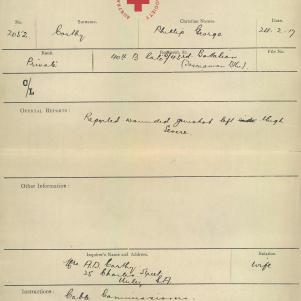 SOCIETY
No. Surname. Christian Names. Date.
2052 Carthy Phillip George 24.2.17
Rank. Regiment, &c. File No.
Private 40th B late 42nd Battalion
(Tasmanian Bln)
C/L
OFFICIAL REPORTS:
Reported wounded gunshot left thigh
Severe
Other Information:
Inquirer's Name and Address. Relation.
Mrs A.D. Carthy wife
25 Charles Street
Unley S.A.
Instructions: Cable Commissioners